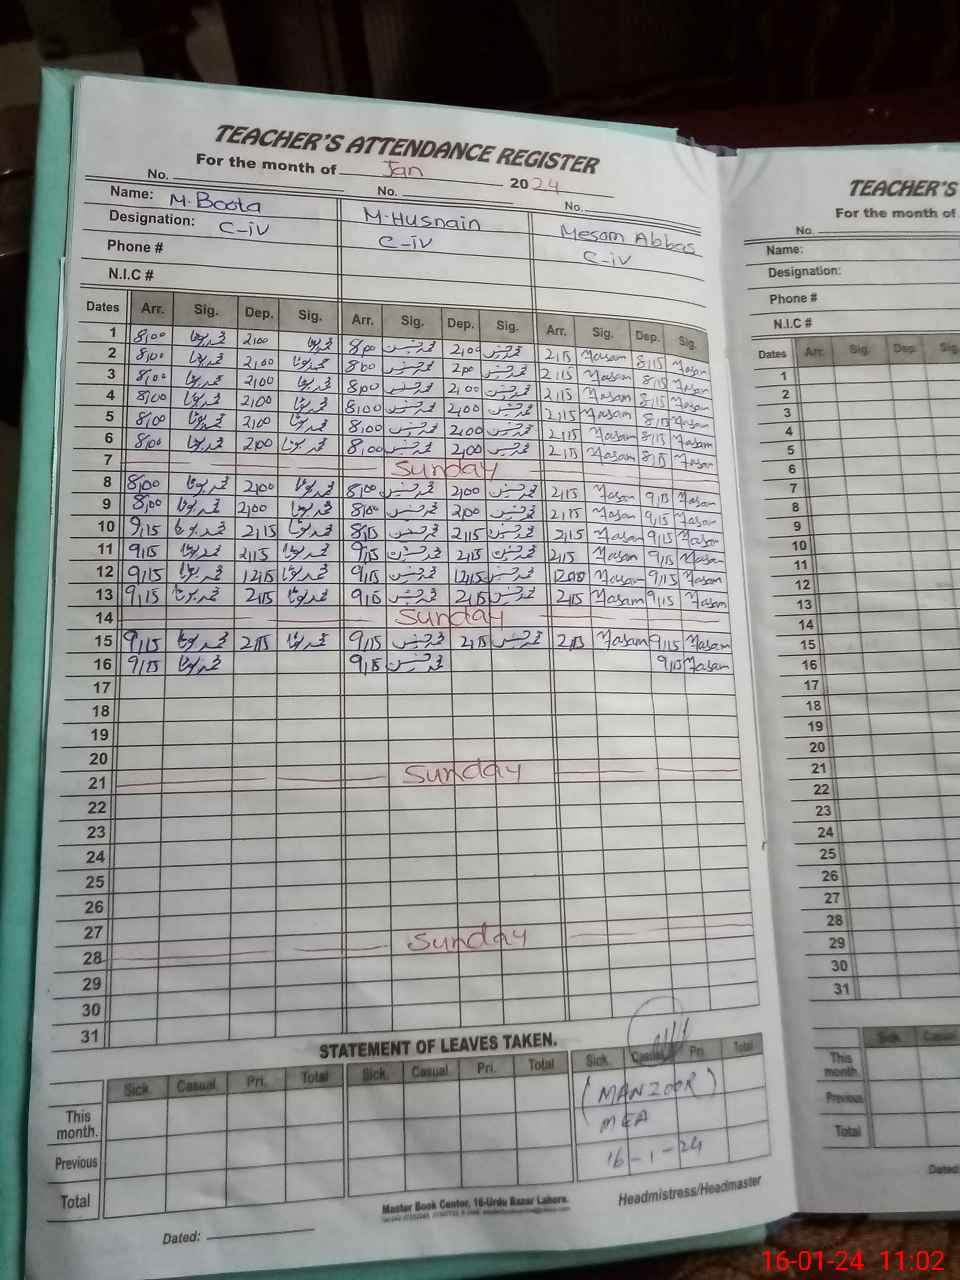 TEACHER'S ATTENDANCE REGISTER
For the month of Jan 2024
No. No. No.
Name: M. Boota M. Husnain Mesam Abbas
Designation: C-iv C-iv C-iv
Phone #
N.I.C #
Dates Arr. Sig. Dep. Sig. Arr. Sig. Dep. Sig. Arr. Sig. Dep. Sig.
1 8,00 محمد بوٹا 2,00 محمد بوٹا 8,00 محمد حسنین 2,00 محمد حسنین 2,15 Masam 8,15 Masam
2 8,00 محمد بوٹا 2,00 محمد بوٹا 8,00 محمد حسنین 2,00 محمد حسنین 2,15 Masam 8,15 Masam
3 8,00 محمد بوٹا 2,00 محمد بوٹا 8,00 محمد حسنین 2,00 محمد حسنین 2,15 Masam 8,15 Masam
4 8,00 محمد بوٹا 2,00 محمد بوٹا 8,00 محمد حسنین 2,00 محمد حسنین 2,15 Masam 8,15 Masam
5 8,00 محمد بوٹا 2,00 محمد بوٹا 8,00 محمد حسنین 2,00 محمد حسنین 2,15 Masam 8,15 Masam
6 8,00 محمد بوٹا 2,00 محمد بوٹا 8,00 محمد حسنین 2,00 محمد حسنین 2,15 Masam 8,15 Masam
7 Sunday
8 8,00 محمد بوٹا 2,00 محمد بوٹا 8,00 محمد حسنین 2,00 محمد حسنین 2,15 Masam 9,15 Masam
9 8,00 محمد بوٹا 2,00 محمد بوٹا 8,00 محمد حسنین 2,00 محمد حسنین 2,15 Masam 9,15 Masam
10 9,15 محمد بوٹا 2,15 محمد بوٹا 8,15 محمد حسنین 2,15 محمد حسنین 2,15 Masam 9,15 Masam
11 9,15 محمد بوٹا 2,15 محمد بوٹا 9,15 محمد حسنین 2,15 محمد حسنین 2,15 Masam 9,15 Masam
12 9,15 محمد بوٹا 12,15 محمد بوٹا 9,15 محمد حسنین 12,15 محمد حسنین Masam 9,15 Masam
13 9,15 محمد بوٹا 2,15 محمد بوٹا 9,15 محمد حسنین 2,15 محمد حسنین 2,15 Masam 9,15 Masam
14 Sunday
15 9,15 محمد بوٹا 2,15 محمد بوٹا 9,15 محمد حسنین 2,15 محمد حسنین 2,15 Masam 9,15 Masam
16 9,15 محمد بوٹا 9,15 محمد حسنین 9,15 Masam
17
18
19
20
21 Sunday
22
23
24
25
26
27
28 Sunday
29
30
31
STATEMENT OF LEAVES TAKEN.
Sick. Casual. Pri. Total Sick. Casual Pri. Total Sick. Casual Pri. Total
This month.
Previous
Total
(MANZOOR)
MEA
16-1-24
Master Book Center, 16-Urdu Bazar Lahore.
Headmistress/Headmaster
Dated:
TEACHER'S
For the month of
No.
Name:
Designation:
Phone #
N.I.C #
Dates Arr. Sig. Dep. Sig.
1
2
3
4
5
6
7
8
9
10
11
12
13
14
15
16
17
18
19
20
21
22
23
24
25
26
27
28
29
30
31
Sick. Casual
This month.
Previous
Total
Dated:
16-01-24 11:02